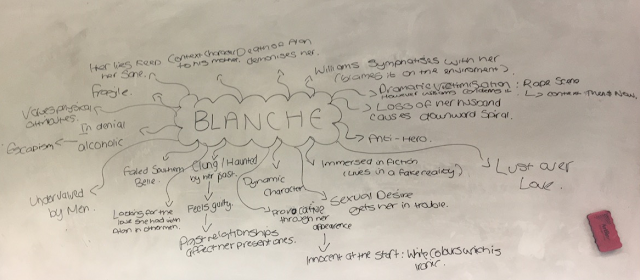 Her lies keep
her sane.
Context: Character
to his mother.
Death of Allan
demonises her.
Williams sympathises with her
(blames it on the environment)
Dramatic Victimisation : Rape Scene
However Williams condemns it. ↳ context: Then & Now.
Loss of her husband
causes downward spiral.
Anti-Hero.
Lust over
Love.
Fragile.
Values physical
attributes.
Escapism
In denial
alcoholic
BLANCHE
Undervalued
by Men.
Faded Southern
Belle.
Looking for the
love she had with
Allan in other men.
Clung / Haunted
by her past.
Feels guilty.
Past relationships
affect her present ones.
Dynamic
Character
Provocative
through her
appearence
Immersed in fiction
(Lives in a fake reality)
Sexual Desire
gets her in trouble.
Innocent at the start: White Colours which is
ironic.